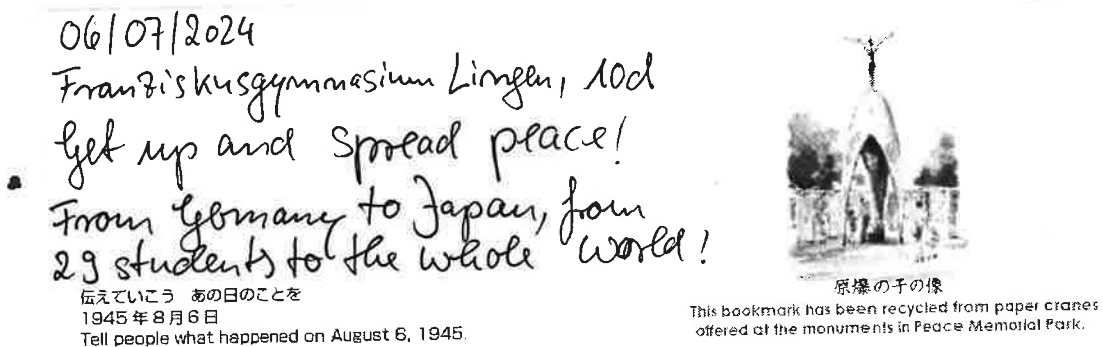 06/07/2024
Franziskusgymnasium Lingen, 10d
Get up and spread peace!
From Germany to Japan, from
29 students to the whole world!
伝えていこう あの日のことを
1945年8月6日
Tell people what happened on August 6, 1945.
原爆の子の像
This bookmark has been recycled from paper cranes
offered at the monuments in Peace Memorial Park.